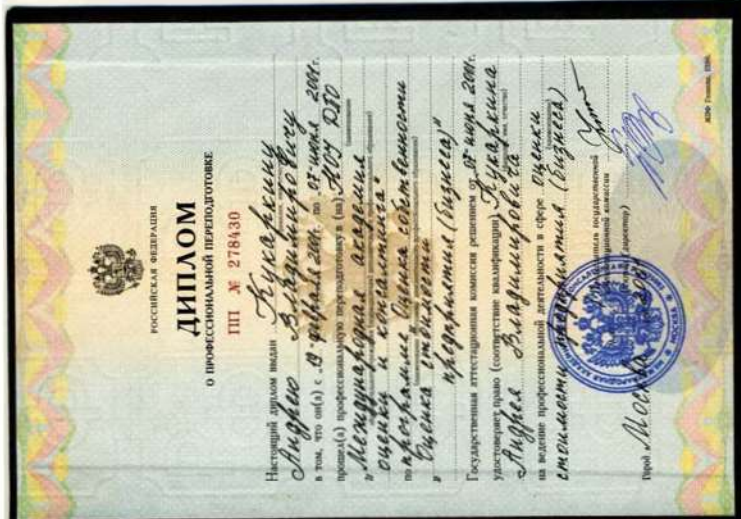 РОССИЙСКАЯ ФЕДЕРАЦИЯ
ДИПЛОМ
О ПРОФЕССИОНАЛЬНОЙ ПЕРЕПОДГОТОВКЕ
ПП № 278430
Настоящий диплом выдан Кукаркину
Андрею Владимировичу
в том, что он(а) с „13" февраля 2001г. по „07" июня 2001г.
прошел(а) профессиональную переподготовку в (на) НОУ ДПО
„Международная академия
оценки и консалтинга"
по программе „Оценка собственности
Оценка стоимости
предприятия (бизнеса)"
Государственная аттестационная комиссия решением от „07" июня 2001г.
удостоверяет право (соответствие квалификации) Кукаркина
Андрея Владимировича
на ведение профессиональной деятельности в сфере оценки
стоимости предприятия (бизнеса)
государственной
аттестационной комиссии
Город Москва 2001
МОСКВА